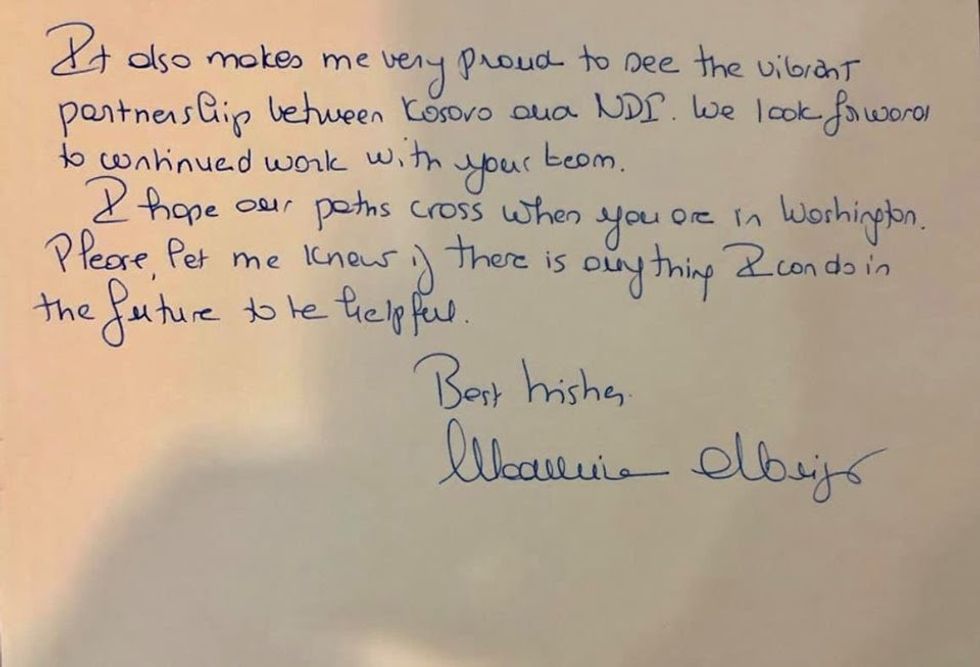 It also makes me very proud to see the vibrant
partnership between Kosovo and NDI. We look forward
to continued work with your team.
I hope our paths cross when you are in Washington.
Please, let me know if there is anything I can do in
the future to be helpful.
Best Wishes